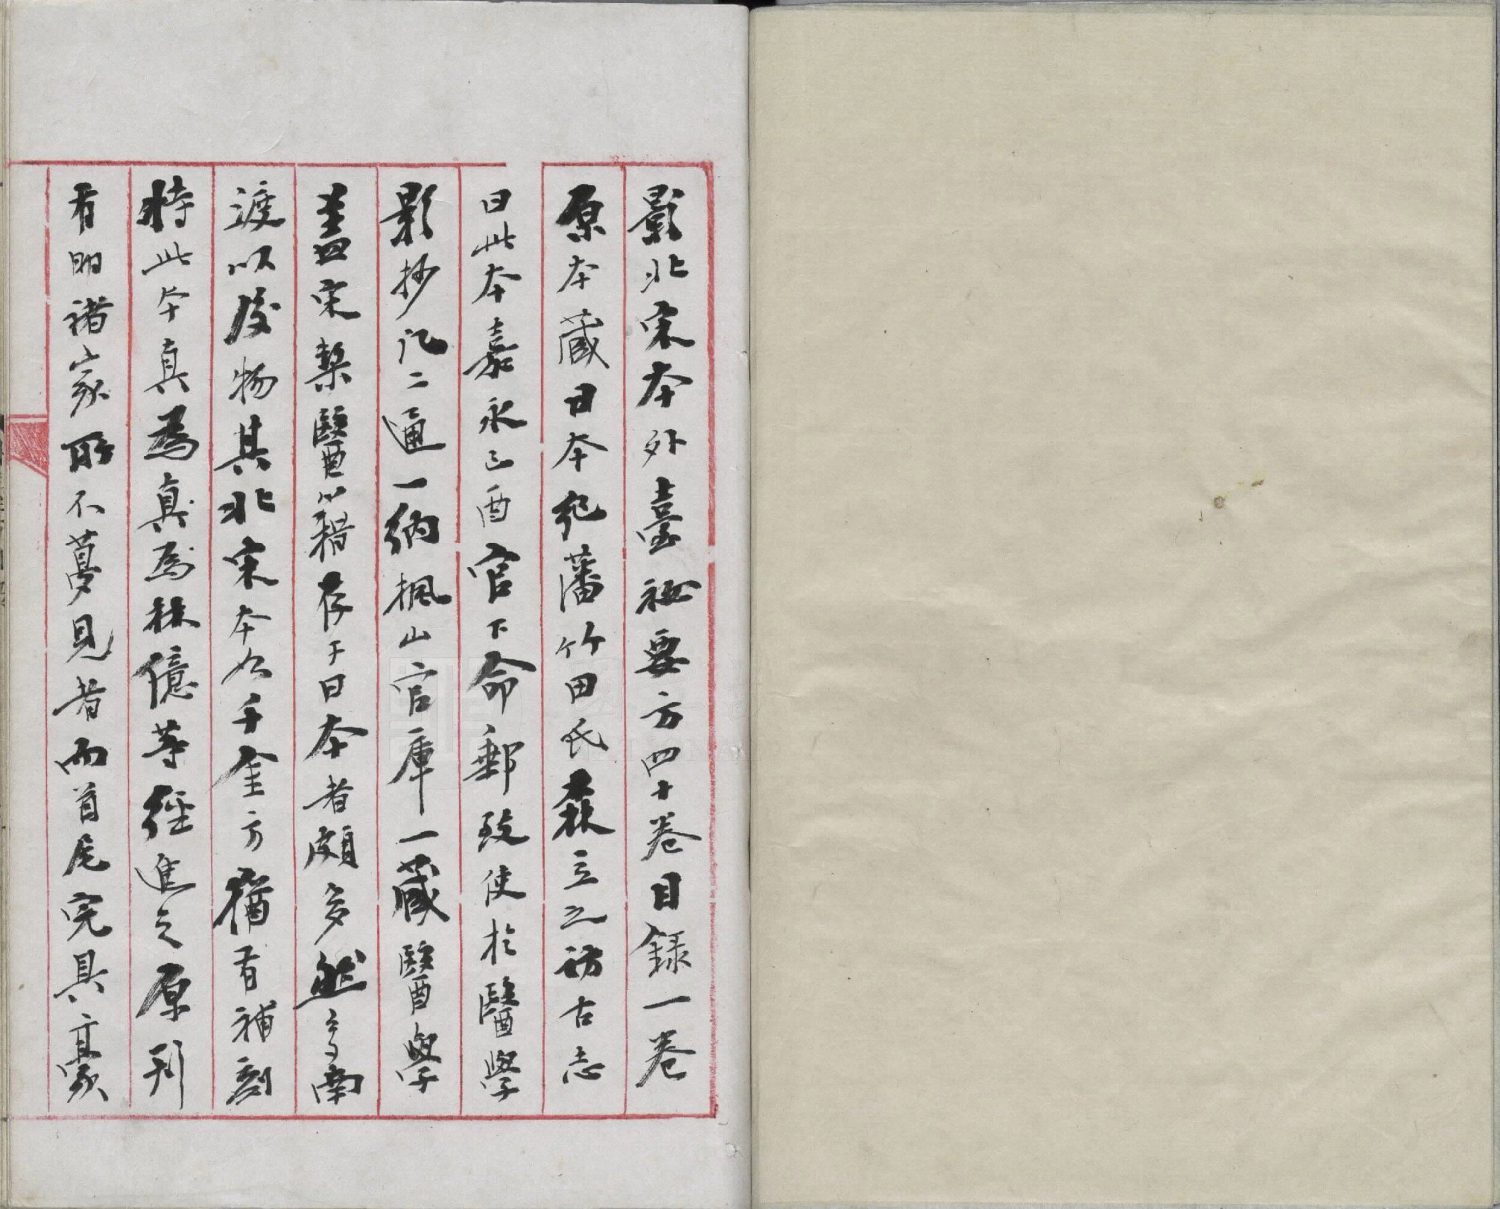 影北宋本外臺祕要方四十卷目録一卷
原本藏日本紀藩竹田氏森立之訪古志
曰此本嘉永己酉官下命郵致使於醫學
影抄記二通一納楓山官庫一藏醫學
蓋宋槧醫籍存于日本者頗多然多南
渡以後物其北宋本如千金方猶有補刻
特此本真為真為林億等經進之原刊
有明諸家所不夢見者而首尾完具豪